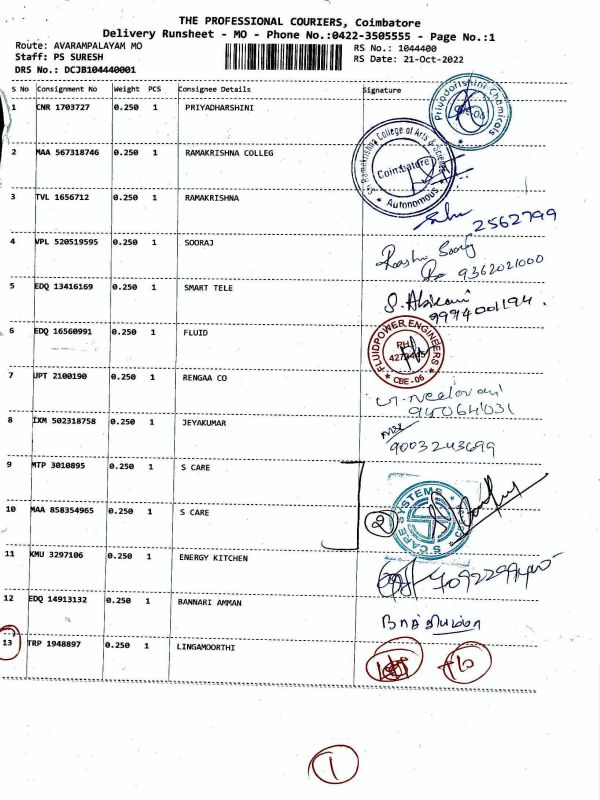 THE PROFESSIONAL COURIERS, Coimbatore
Delivery Runsheet - MO - Phone No.:0422-3505555 - Page No.:1
Route: AVARAMPALAYAM MO
RS No.: 1044400
Staff: PS SURESH
RS Date: 21-Oct-2022
DRS No.: DCJB104440001
S No Consignment No Weight PCS Consignee Details Signature
1 CNR 1703727 0.250 1 PRIYADHARSHINI
Priyadarishini Chemicals
2 MAA 567318746 0.250 1 RAMAKRISHNA COLLEG
Sri Ramakrishna College of Arts & Science
Coimbatore
Autonomous
3 TVL 1656712 0.250 1 RAMAKRISHNA
2562799
4 VPL 520519595 0.250 1 SOORAJ
9362021000
5 EDQ 13416169 0.250 1 SMART TELE
9994001194.
6 EDQ 16560991 0.250 1 FLUID
PS
FLUIDPOWER ENGINEERS
CBE-06
7 JPT 2100190 0.250 1 RENGAA CO
8 IXM 502318758 0.250 1 JEYAKUMAR
9003243699
9 MTP 3010895 0.250 1 S CARE
10 MAA 858354965 0.250 1 S CARE
2
S CARE SYSTEMS
11 KMU 3297106 0.250 1 ENERGY KITCHEN
12 EDQ 14913132 0.250 1 BANNARI AMMAN
13 TRP 1948897 0.250 1 LINGAMOORTHI
1